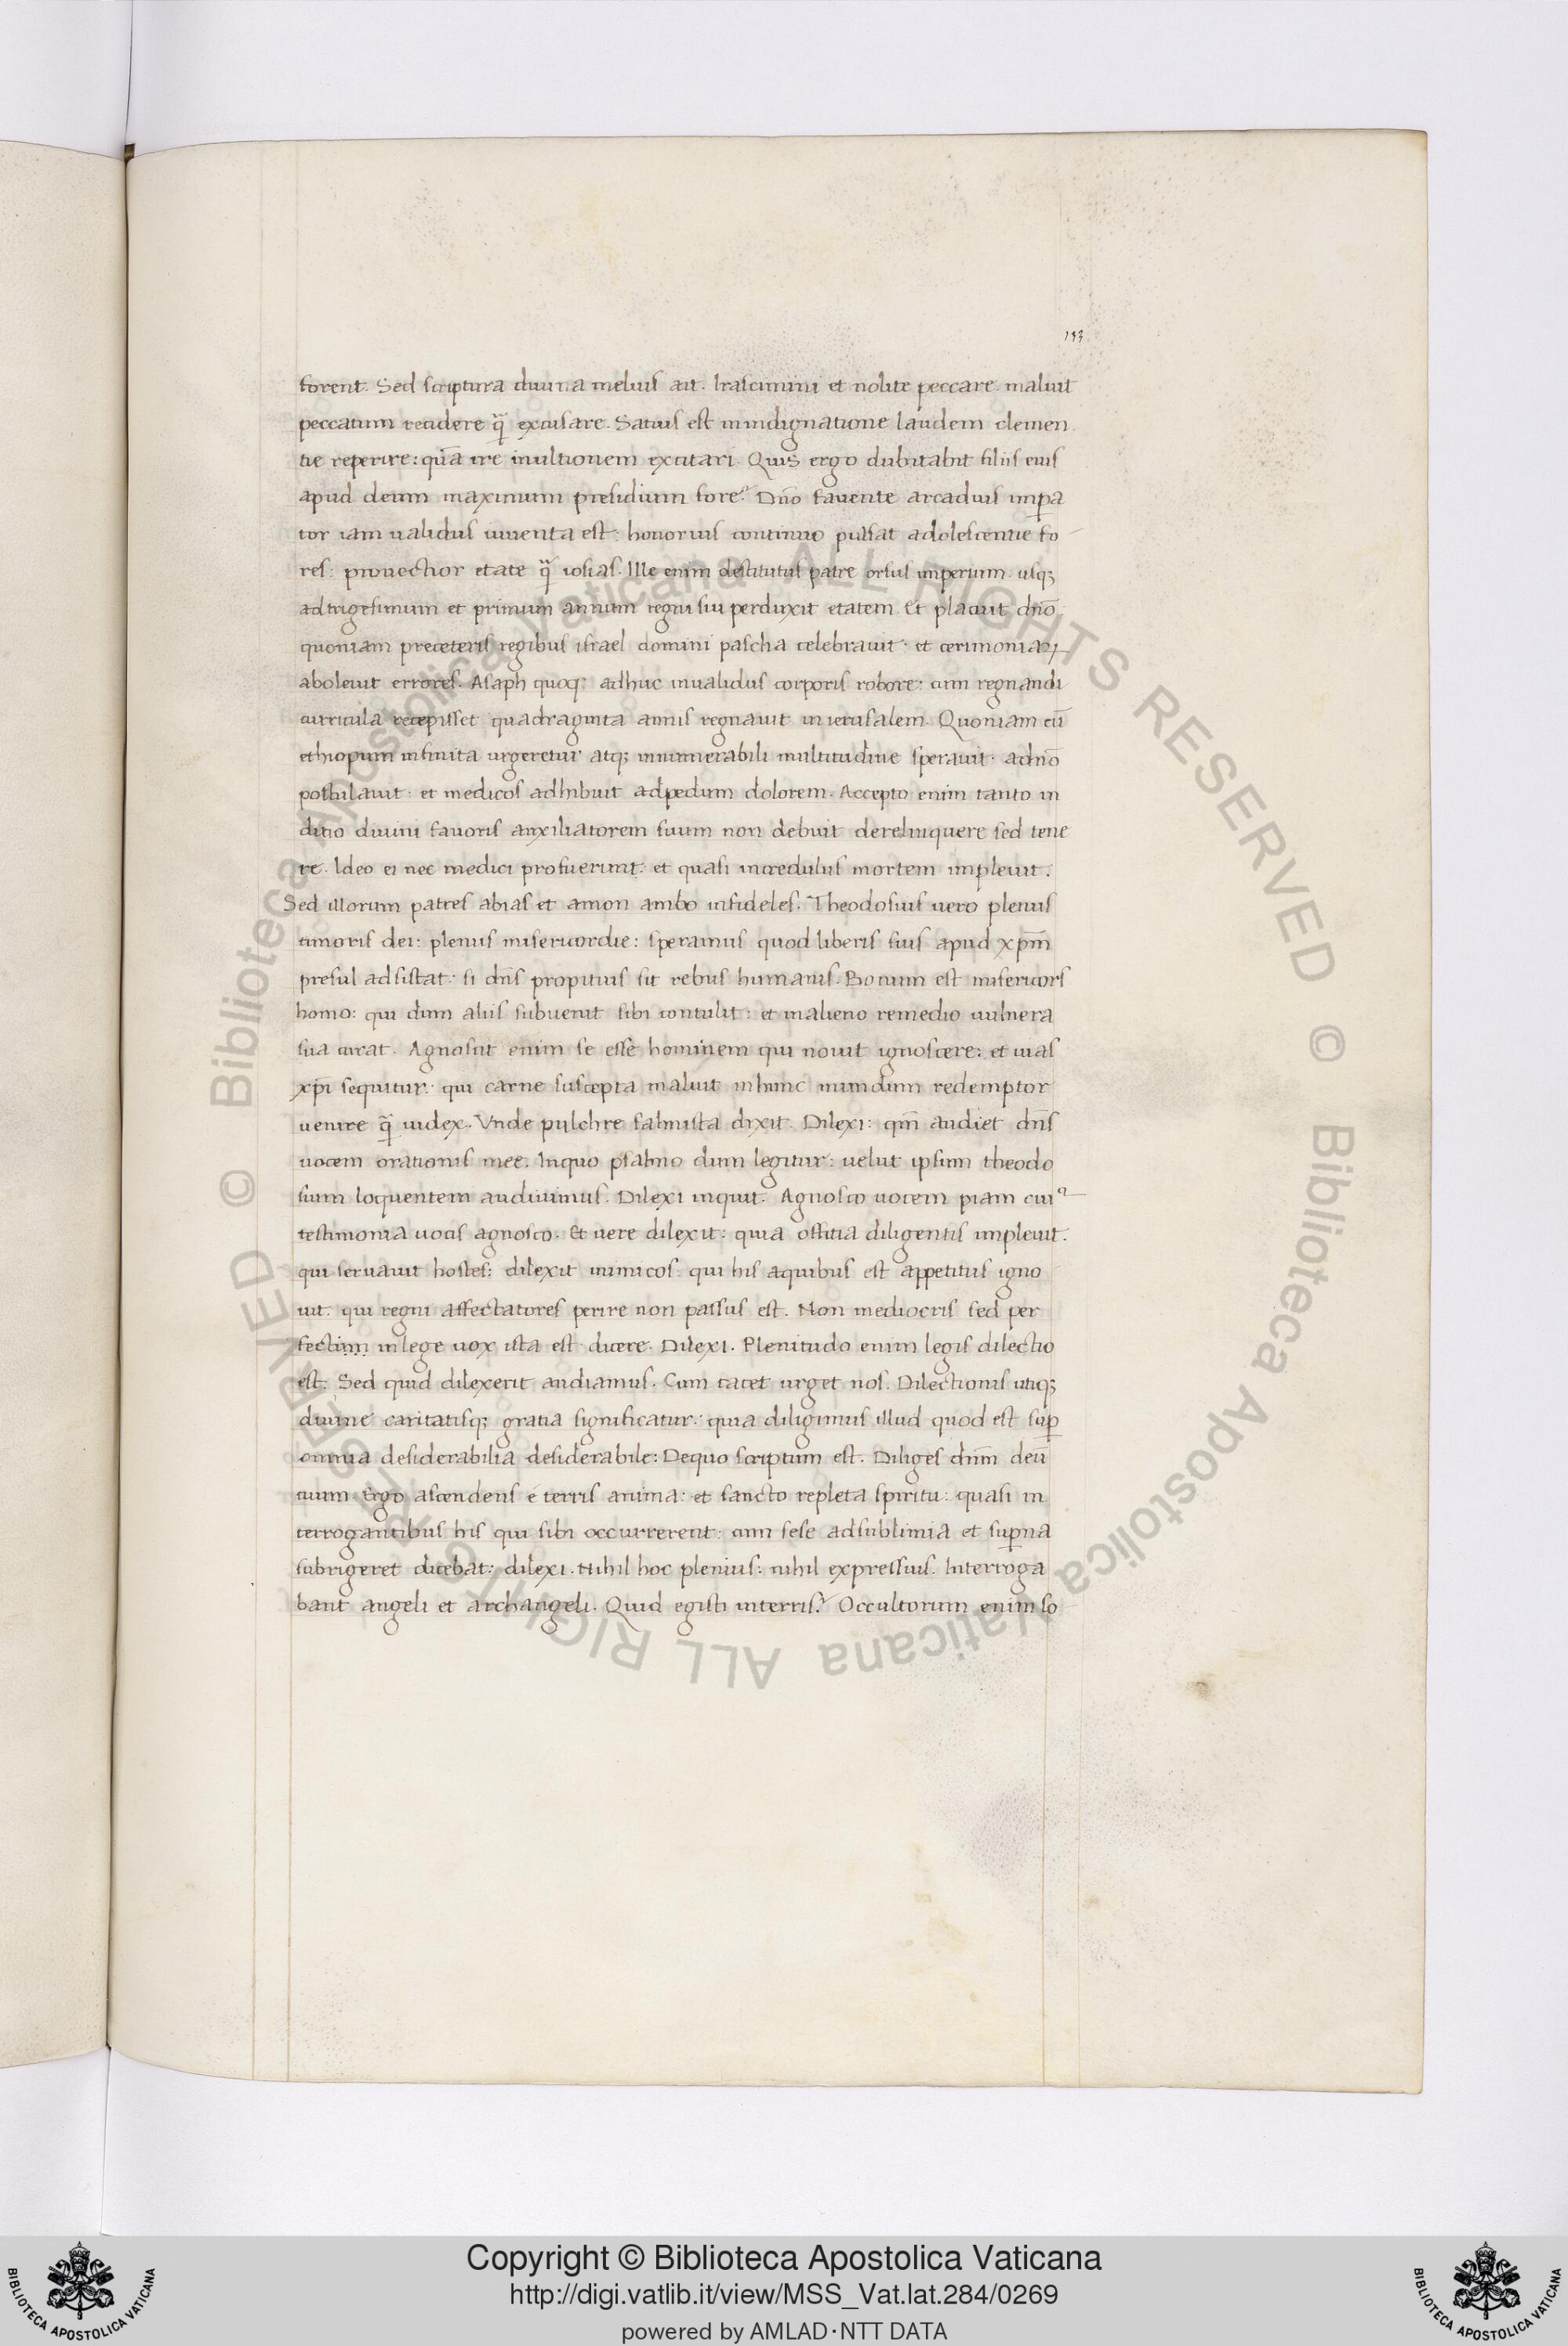 133
forent. Sed scriptura diuina melius ait. Irascimini et nolite peccare. maluit
peccatum recidere q̃ excusare. Satius est inindignatione laudem clemen
tie reperire: quā ire inultionem excitari. Quis ergo dubitabit filiis eius
apud deum maximum presidium fore? Dn̄o fauente arcadius imꝑa
tor iam ualidus iuuenta est: honorius continuo pulsat adolescentie fo
res: prouectior etate q̃ iosias. Ille enim destitutus patre orsus imperium. usqꝫ
adtrigesimum et primum annum regni sui perduxit etatem. Et placuit dn̄o
quoniam preceteris regibus israel domini pascha celebrauit. et cerimoniaꝝ
aboleuit errores. Asaph quoqꝫ adhuc inualidus corporis robore: cum regnandi
curricula recepisset quadraginta annis regnauit in ierusalem. Quoniam cū
ethiopum infinita urgeretur atqꝫ innumerabili multitudine sperauit. adn̄o
postulauit. et medicos adhibuit adpedum dolorem. Accepto enim tanto in
ditio diuini fauoris auxiliatorem suum non debuit derelinquere sed tene
re. Ideo ei nec medici profuerunt: et quasi incredulus mortem impleuit.
Sed illorum patres abias et amon ambo infideles. Theodosius uero plenus
timoris dei: plenus misericordie: speramus quod liberis suis apud xp̄m
presul adsistat: si dn̄s propitius sit rebus humanis. Bonum est misericors
homo: qui dum aliis subuenit sibi contulit: et inalieno remedio uulnera
sua curat. Agnoscit enim se esse hominem qui nouit ignoscere: et uias
xp̄i sequitur: qui carne suscepta maluit inhunc mundum redemptor
uenire q̃ iudex. Vnde pulchre salmista dixit. Dilexi: qm̄ audiet dn̄s
uocem orationis mee. Inquo psalmo dum legitur: uelut ipsum theodo
sium loquentem audiuimus. Dilexi inquit. Agnosco uocem piam cuiꝰ
testimonia uocis agnosco. Et uere dilexit: quia offitia diligentis impleuit.
qui seruauit hostes: dilexit inimicos: qui his aquibus est appetitus igno
uit. qui regni affectatores perire non passus est. Non mediocris sed per
fectum inlege uox ista est dicere. Dilexi. Plenitudo enim legis dilectio
est. Sed quid dilexerit audiamus. Cum tacet urget nos. Dilectionis utiqꝫ
diuine caritatisqꝫ gratia significatur: quia diligimus illud quod est suꝑ
omnia desiderabilia desiderabile: Dequo scriptum est. Diliges dn̄m deū
tuum. Ergo ascendens e terris anima: et sancto repleta spiritu: quasi in
terrogantibus his qui sibi occurrerent: cum sese adsublimia et suꝑna
subrigeret dicebat: dilexi. Nihil hoc plenius: nihil expressius. Interroga
bant angeli et archangeli. Quid egisti interris? Occultorum enim so
Copyright © Biblioteca Apostolica Vaticana
http://digi.vatlib.it/view/MSS_Vat.lat.284/0269
powered by AMLAD·NTT DATA
BIBLIOTECA APOSTOLICA VATICANA
BIBLIOTECA APOSTOLICA VATICANA
© Biblioteca Apostolica Vaticana ALL RIGHTS RESERVED
© Biblioteca Apostolica Vaticana ALL RIGHTS RESERVED